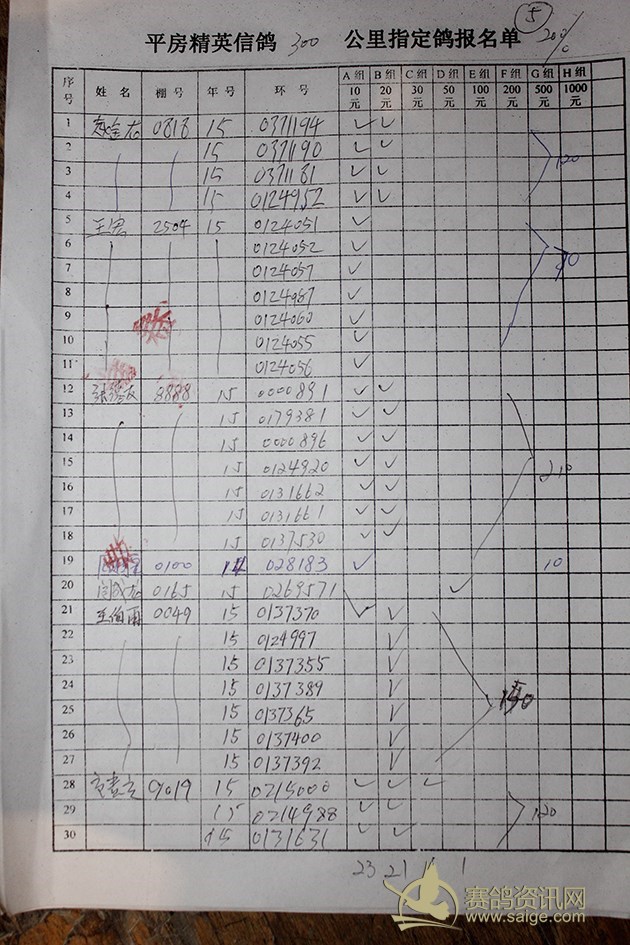 5
平房精英信鸽 300 公里指定鸽报名单 20%
序号 姓 名 棚 号 年 号 环 号 A 组 10 元 B 组 20 元 C 组 30 元 D 组 50 元 E 组 100 元 F 组 200 元 G 组 500 元 H 组 1000 元
1 0818 15 0371194 ✓ ✓
2 15 0371190 ✓ ✓
3 15 0371181 ✓ ✓ 120
4 15 0124952 ✓ ✓
5 王宏 2504 15 0124051 ✓
6 0124052 ✓
7 0124057 ✓ 70
8 0124987 ✓
9 0124060 ✓
10 0124055 ✓
11 0124056 ✓
12 8888 15 0000891 ✓ ✓
13 15 0179381 ✓ ✓
14 15 0000896 ✓ ✓
15 15 0124920 ✓ ✓ 210
16 15 0131662 ✓ ✓
17 15 0131661 ✓ ✓
18 15 0137530 ✓ ✓
19 0100 14 028183 ✓ 10
20 0165 15 0269571 ✓
21 王伯雨 0049 15 0137370 ✓ ✓
22 15 0124997 ✓
23 15 0137355 ✓
24 15 0137389 ✓
25 15 0137365 ✓
26 15 0137400 ✓
27 15 0137392 ✓
28 9019 15 0215000 ✓ ✓ ✓
29 15 0214988 ✓ ✓ 120
30 15 0131631 ✓ ✓
23 21 1 1
赛鸽资讯网
www.saige.com